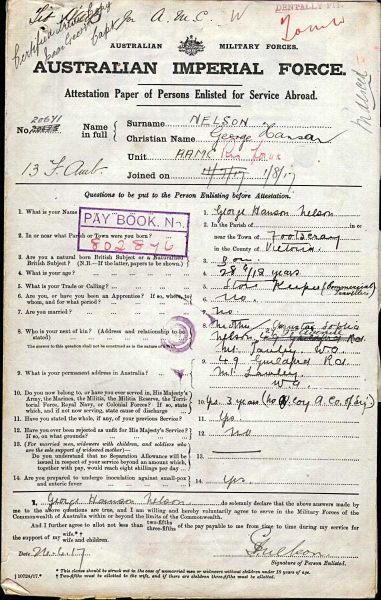 A. M. C. W
DENTALLY FIT.
Certified true copy
Capt
AUSTRALIAN MILITARY FORCES.
AUSTRALIAN IMPERIAL FORCE.
Attestation Paper of Persons Enlisted for Service Abroad.
20671
No.
Name in full
Surname NELSON
Christian Name George Hanson
Unit AAMC
13 F. Amb.
Joined on 1/8/17
Questions to be put to the Person Enlisting before Attestation.
1. What is your Name?
1. George Hanson Nelson
PAY BOOK. No.
80287
2. In or near what Parish or Town were you born?
2. In the Parish of
near the Town of Footscray
in the County of Victoria
3. Are you a natural born British Subject or a Naturalised British Subject? (N.B.—If the latter, papers to be shown.)
3.
4. What is your age?
4. 28 6/12 years
5. What is your Trade or Calling?
5. Store Keeper (Commercial Traveller)
6. Are you, or have you been an Apprentice? If so, where, to whom, and for what period?
6. no.
7. Are you married?
7. no
8. Who is your next of kin? (Address and relationship to be stated)
8. Mother Sophia
Nelson,
Mt. Lawley W.A
The answer to this question shall not be construed as in the nature of a will.
9. What is your permanent address in Australia?
9. 49 Guildford Rd.
Mt. Lawley
W.A
10. Do you now belong to, or have you ever served in, His Majesty's Army, the Marines, the Militia, the Militia Reserve, the Territorial Force, Royal Navy, or Colonial Forces? If so, state which, and if not now serving, state cause of discharge
10. yes. 3 years
11. Have you stated the whole, if any, of your previous Service?
11. yes.
12. Have you ever been rejected as unfit for His Majesty's Service? If so, on what grounds?
12. no
13. (For married men, widowers with children, and soldiers who are the sole support of widowed mother)—
Do you understand that no Separation Allowance will be issued in respect of your service beyond an amount which, together with pay, would reach eight shillings per day
13.
14. Are you prepared to undergo inoculation against small-pox and enteric fever
14. yes
I, George Hanson Nelson do solemnly declare that the above answers made by me to the above questions are true, and I am willing and hereby voluntarily agree to serve in the Military Forces of the Commonwealth of Australia within or beyond the limits of the Commonwealth.
And I further agree to allot not less than two-fifths three-fifths of the pay payable to me from time to time during my service for the support of my wife* wife and children.
Date
Signature of Person Enlisted.
* This clause should be struck out in the case of unmarried men or widowers without children under 18 years of age.
† Two-fifths must be allotted to the wife, and if there are children three-fifths must be allotted.